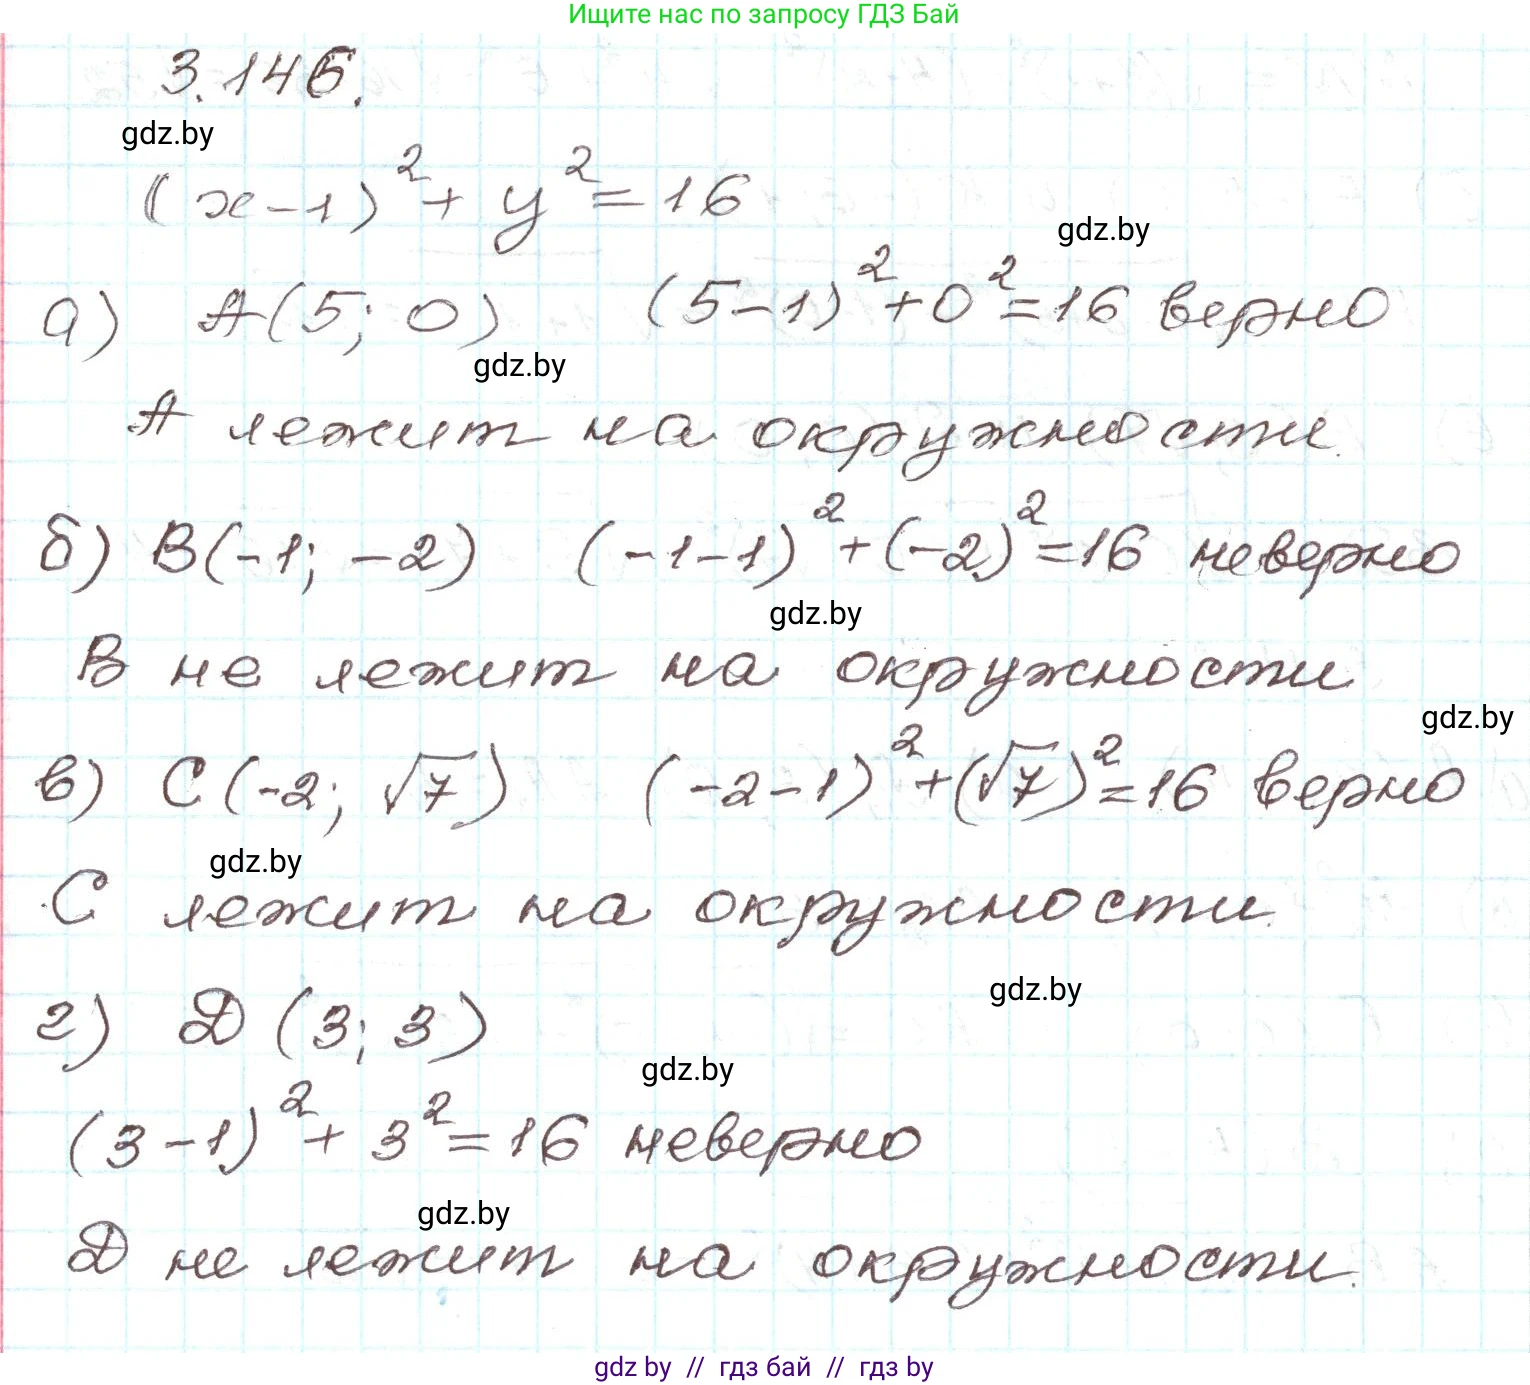 Ищите нас по запросу ГДЗ Бай
3.145.
gdz.by
(x-1)² + y² = 16
gdz.by
а) A(5; 0) (5-1)² + 0² = 16 верно
gdz.by
A лежит на окружности.
б) B(-1; -2) (-1-1)² + (-2)² = 16 неверно
gdz.by
B не лежит на окружности
gdz.by
в) C(-2; √7) (-2-1)² + (√7)² = 16 верно
gdz.by
C лежит на окружности.
gdz.by
г) D (3; 3)
gdz.by
(3-1)² + 3² = 16 неверно
gdz.by
D не лежит на окружности.
gdz by // гдз бай // гдз by